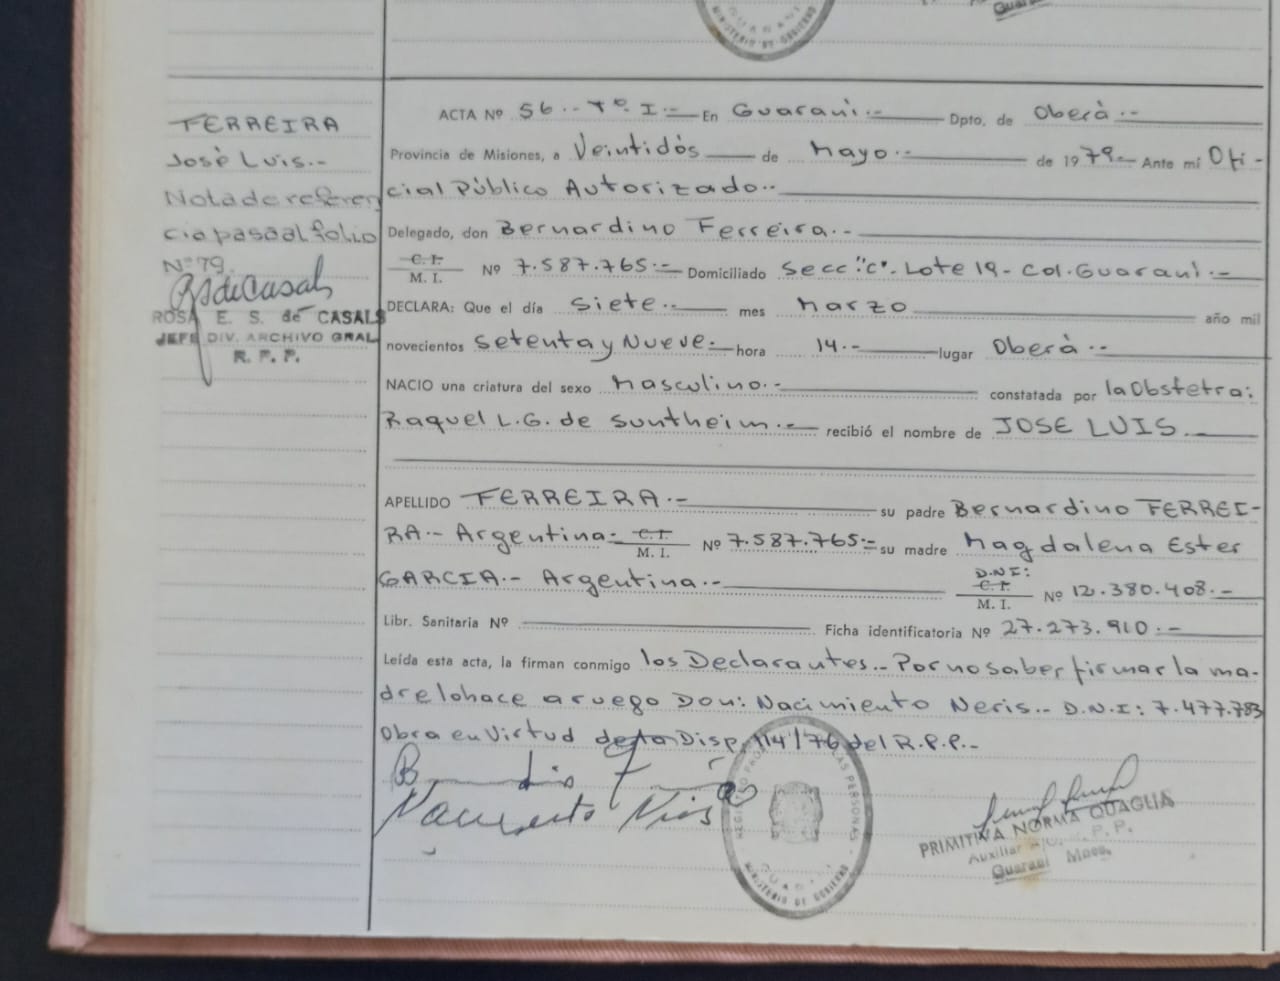 FERREIRA
José Luis.-
Nota de referen
cia pasa al folio
Nº 79.
ROSA E. S. de CASALS
JEFE DIV. ARCHIVO GRAL
R. P. P.
ACTA Nº 56.- Tº I.- En Guaraní.- Dpto. de Oberá.-
Provincia de Misiones, a Veintidós de Mayo.- de 1979.- Ante mí Ofi-
cial Público Autorizado.-
Delegado, don Bernardino Ferreira.-
C. I. M. I. Nº 7.587.765.- Domiciliado Secc. "C". Lote 19- Col. Guaraní.-
DECLARA: Que el día Siete.- mes Marzo año mil
novecientos Setenta y Nueve.- hora 14.- lugar Oberá.-
NACIO una criatura del sexo Masculino.- constatada por la Obstetra:
Raquel L.G. de Suntheim.- recibió el nombre de JOSE LUIS.
APELLIDO FERREIRA.- su padre Bernardino FERREI-
RA.- Argentina- C. I. M. I. Nº 7.587.765.- su madre Magdalena Ester
GARCIA.- Argentina.- D.N.I: C. I. M. I. Nº 12.380.408.-
Libr. Sanitaria Nº Ficha identificatoria Nº 27.273.910.-
Leída esta acta, la firman conmigo los Declarantes.- Por no saber firmar la ma-
dre lo hace a ruego Don: Nacimiento Neris.- D.N.I: 7.477.783
Obra en Virtud de la Disp. 114/76 del R.P.P.-
LAS PERSONAS
MINISTERIO DE GOBIERNO
PRIMITIVA NORMA QUAGLIA
Auxiliar P. P.
Guaraní Mnes.